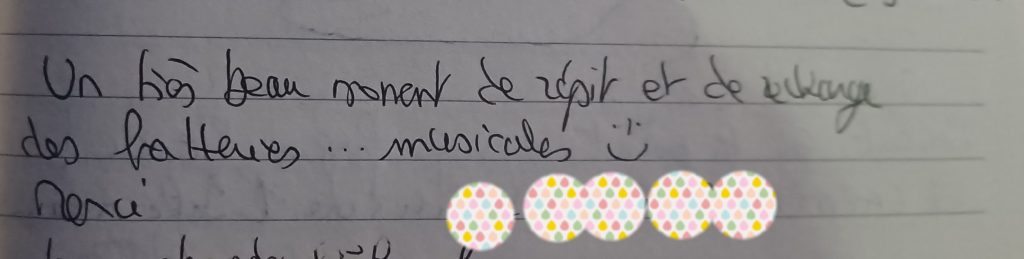 Un très beau moment de répit et de rechange
des batteries ... musicales :)
Merci